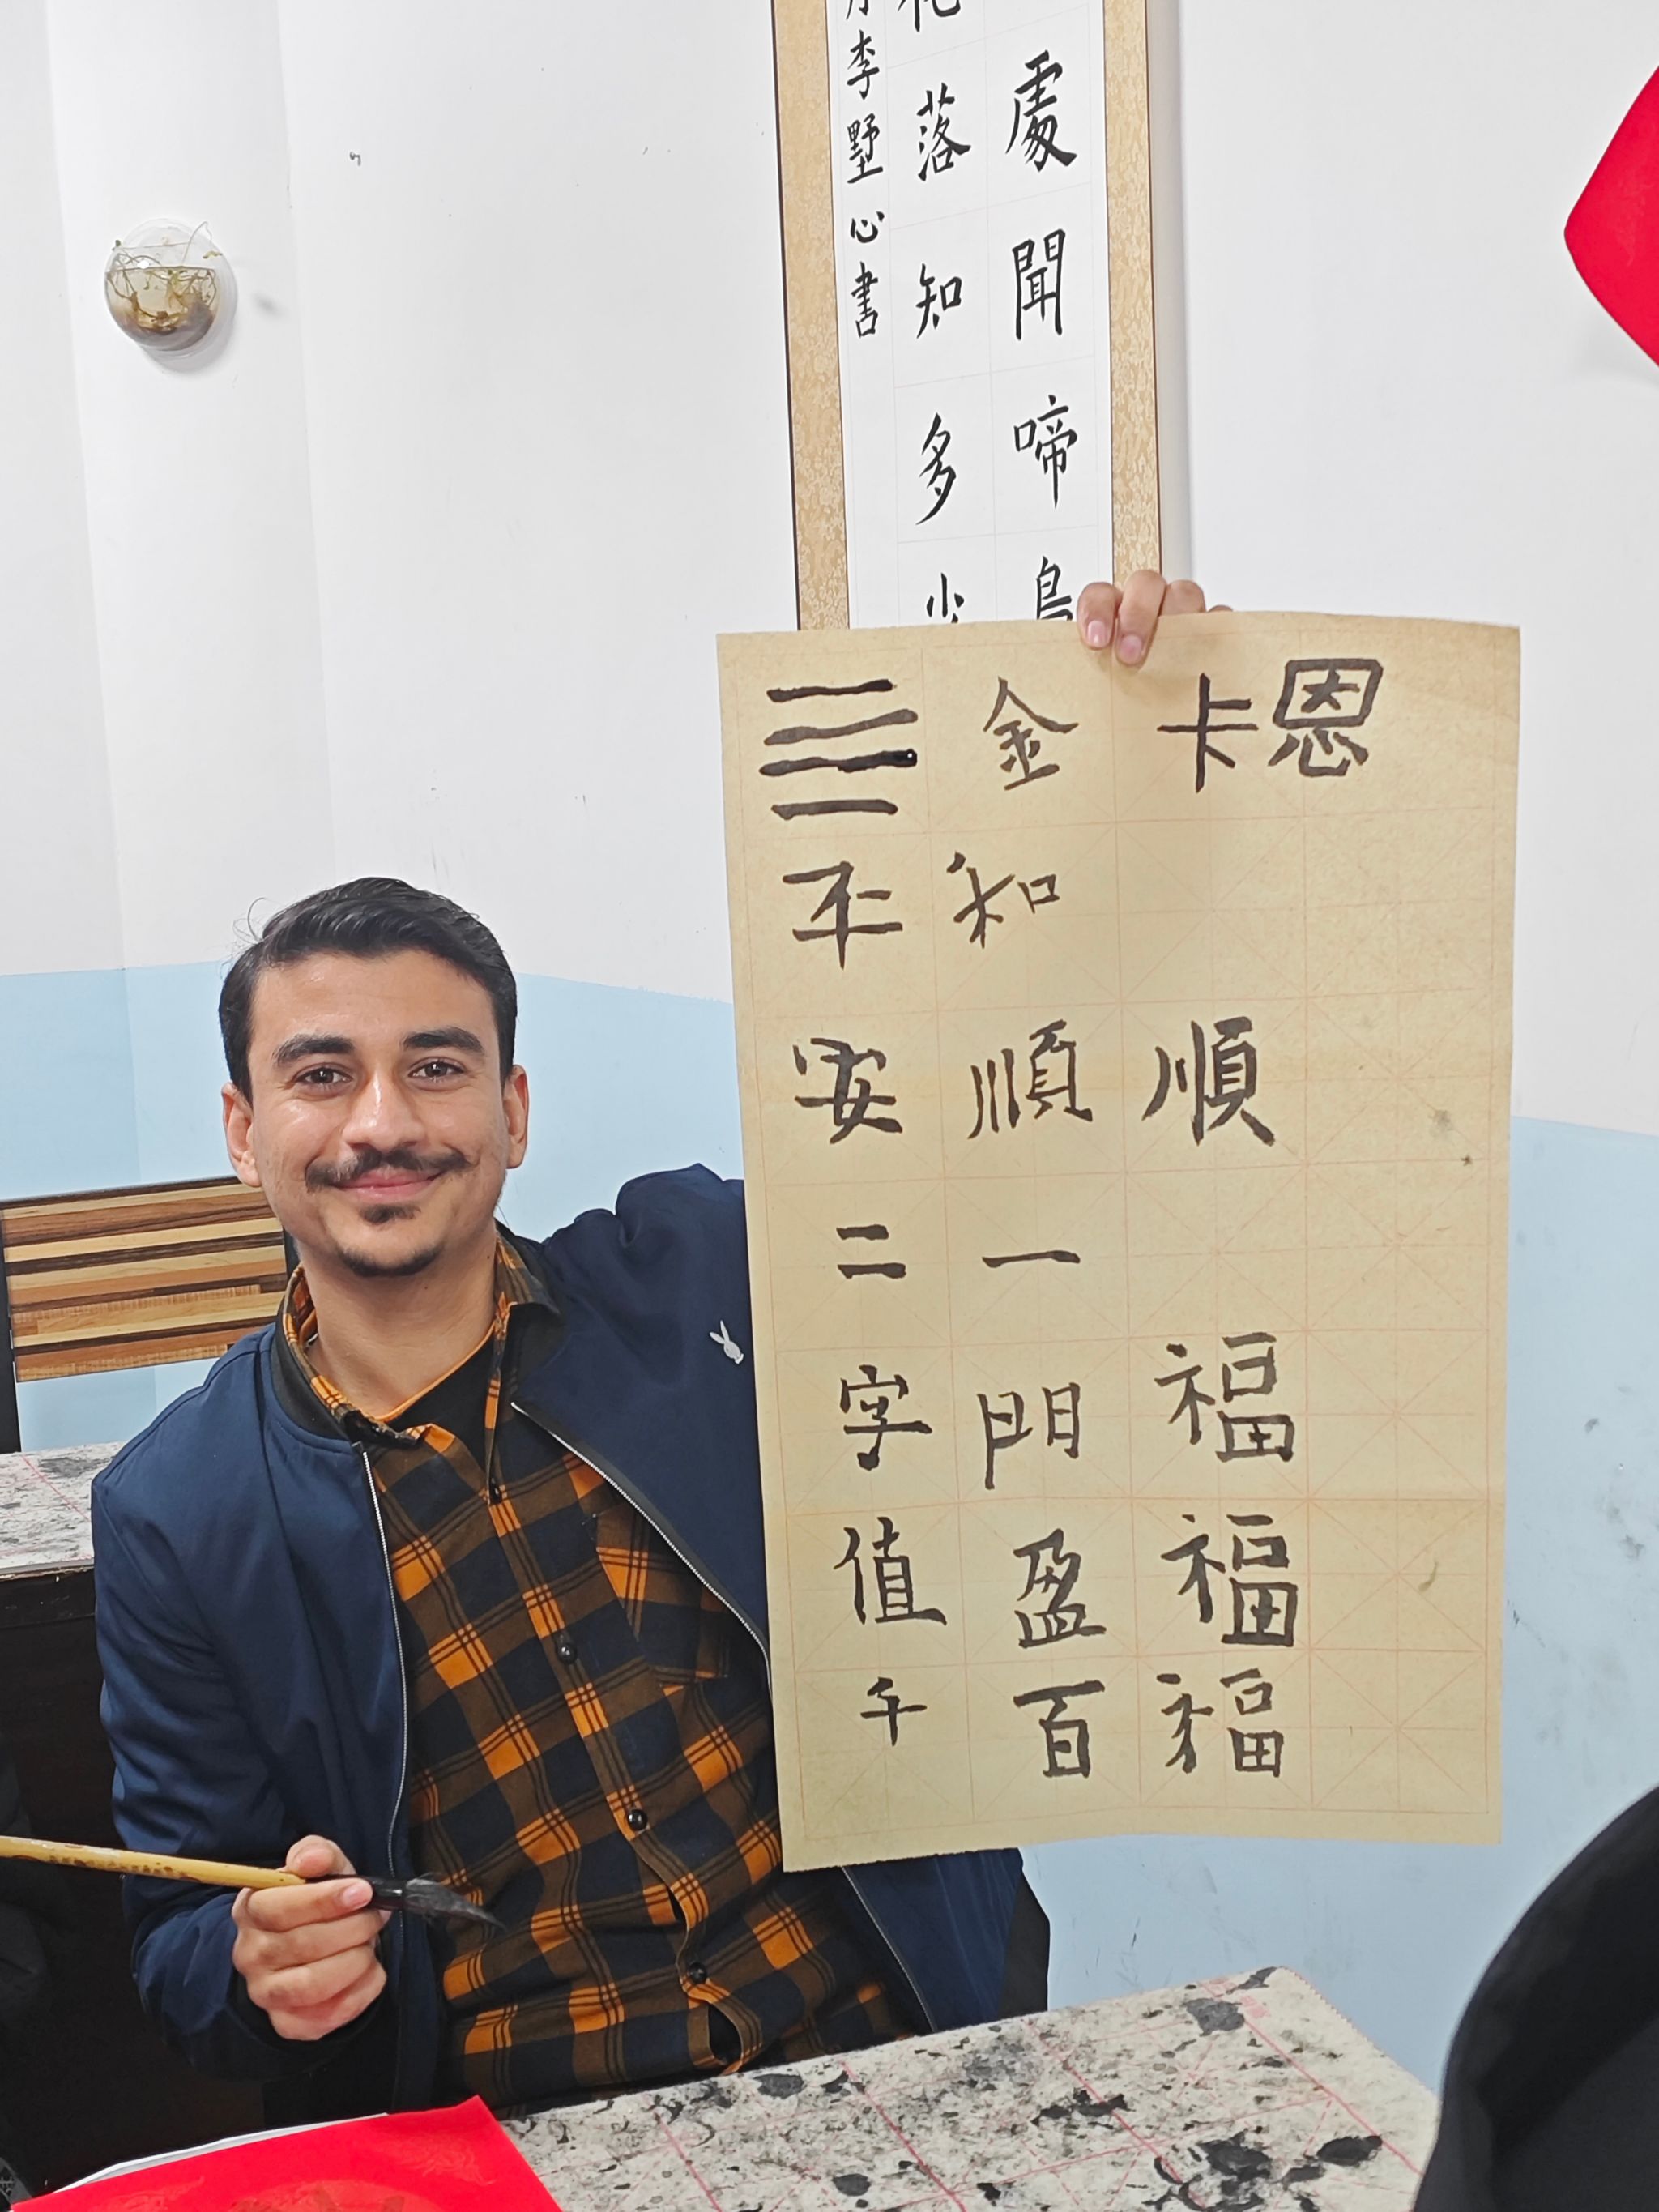 處聞啼鳥
花落知多少
李墅心書
恩
卡順福福福
金和順一門盈百
平安二字值千